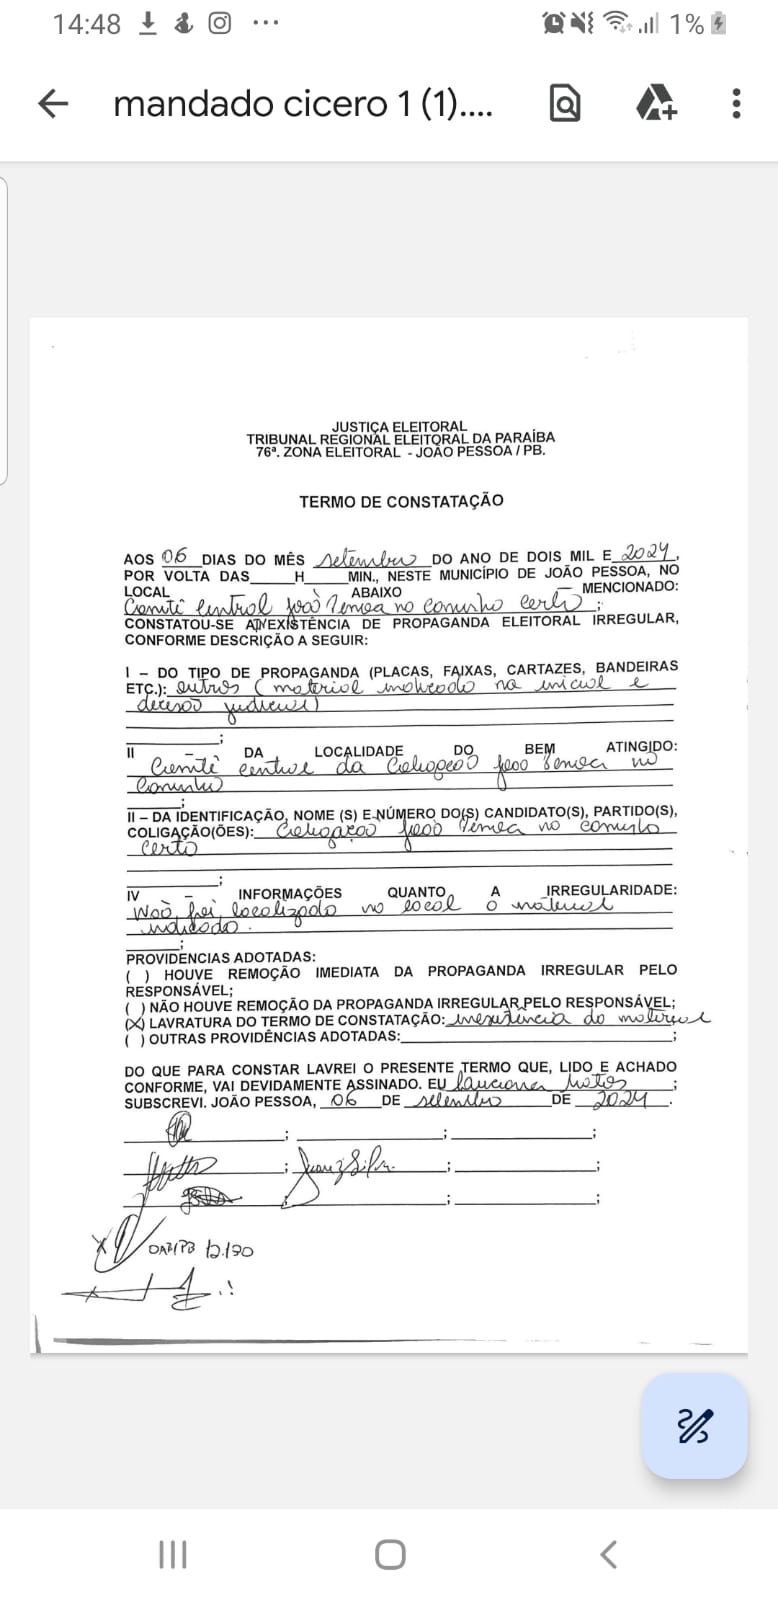 14:48
1%
mandado cicero 1 (1)....
JUSTIÇA ELEITORAL
TRIBUNAL REGIONAL ELEITORAL DA PARAÍBA
76ª. ZONA ELEITORAL - JOÃO PESSOA / PB.
TERMO DE CONSTATAÇÃO
AOS 06 DIAS DO MÊS setembro DO ANO DE DOIS MIL E 2024,
POR VOLTA DAS____H____MIN., NESTE MUNICÍPIO DE JOÃO PESSOA, NO
LOCAL ABAIXO MENCIONADO:
Comitê Central João Pessoa no caminho certo ;
CONSTATOU-SE A EXISTÊNCIA DE PROPAGANDA ELEITORAL IRREGULAR,
CONFORME DESCRIÇÃO A SEGUIR:
I – DO TIPO DE PROPAGANDA (PLACAS, FAIXAS, CARTAZES, BANDEIRAS
ETC.): outros (material indicado na inicial e
decisão judicial)
;
II – DA LOCALIDADE DO BEM ATINGIDO:
Comitê central da Coligação João Pessoa no
Caminho
;
II – DA IDENTIFICAÇÃO, NOME (S) E NÚMERO DO(S) CANDIDATO(S), PARTIDO(S),
COLIGAÇÃO(ÕES): Coligação João Pessoa no caminho
certo
;
IV – INFORMAÇÕES QUANTO A IRREGULARIDADE:
Não foi localizado no local o material
indicado.
;
PROVIDENCIAS ADOTADAS:
( ) HOUVE REMOÇÃO IMEDIATA DA PROPAGANDA IRREGULAR PELO
RESPONSÁVEL;
( ) NÃO HOUVE REMOÇÃO DA PROPAGANDA IRREGULAR PELO RESPONSÁVEL;
(X) LAVRATURA DO TERMO DE CONSTATAÇÃO: inexistência do material
( ) OUTRAS PROVIDÊNCIAS ADOTADAS:____;
DO QUE PARA CONSTAR LAVREI O PRESENTE TERMO QUE, LIDO E ACHADO
CONFORME, VAI DEVIDAMENTE ASSINADO. EU ;
SUBSCREVI. JOÃO PESSOA, 06 DE setembro DE 2024.
OAB/PB 12.190